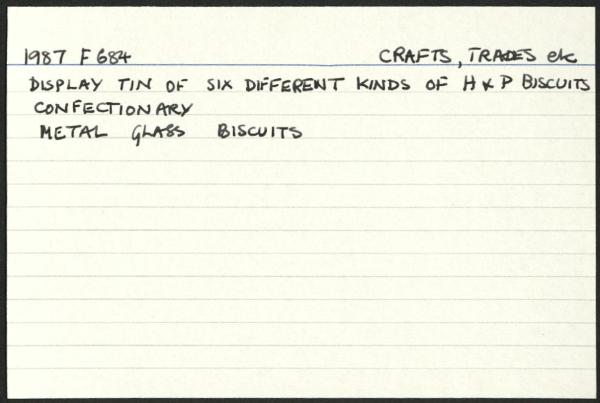 1987 F 684 CRAFTS, TRADES etc
DISPLAY TIN OF SIX DIFFERENT KINDS OF H & P BISCUITS
CONFECTIONARY
METAL GLASS BISCUITS